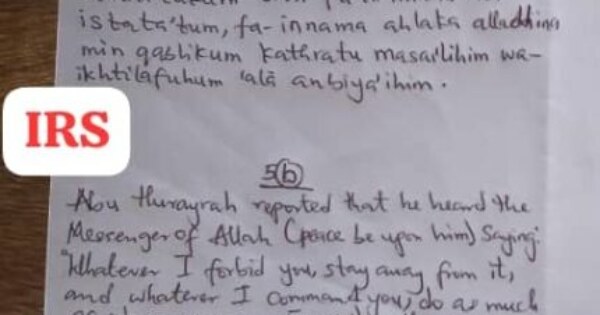 istata'tum, fa-innama ahlaka alladhina
min qablikum kathratu masa'ilihim wa-
ikhtilafuhum 'alā anbiya'ihim.
IRS
5(b)
Abu Hurayrah reported that he heard the
Messenger of Allah (peace be upon him) saying:
"Whatever I forbid you, stay away from it,
and whatever I command you, do as much